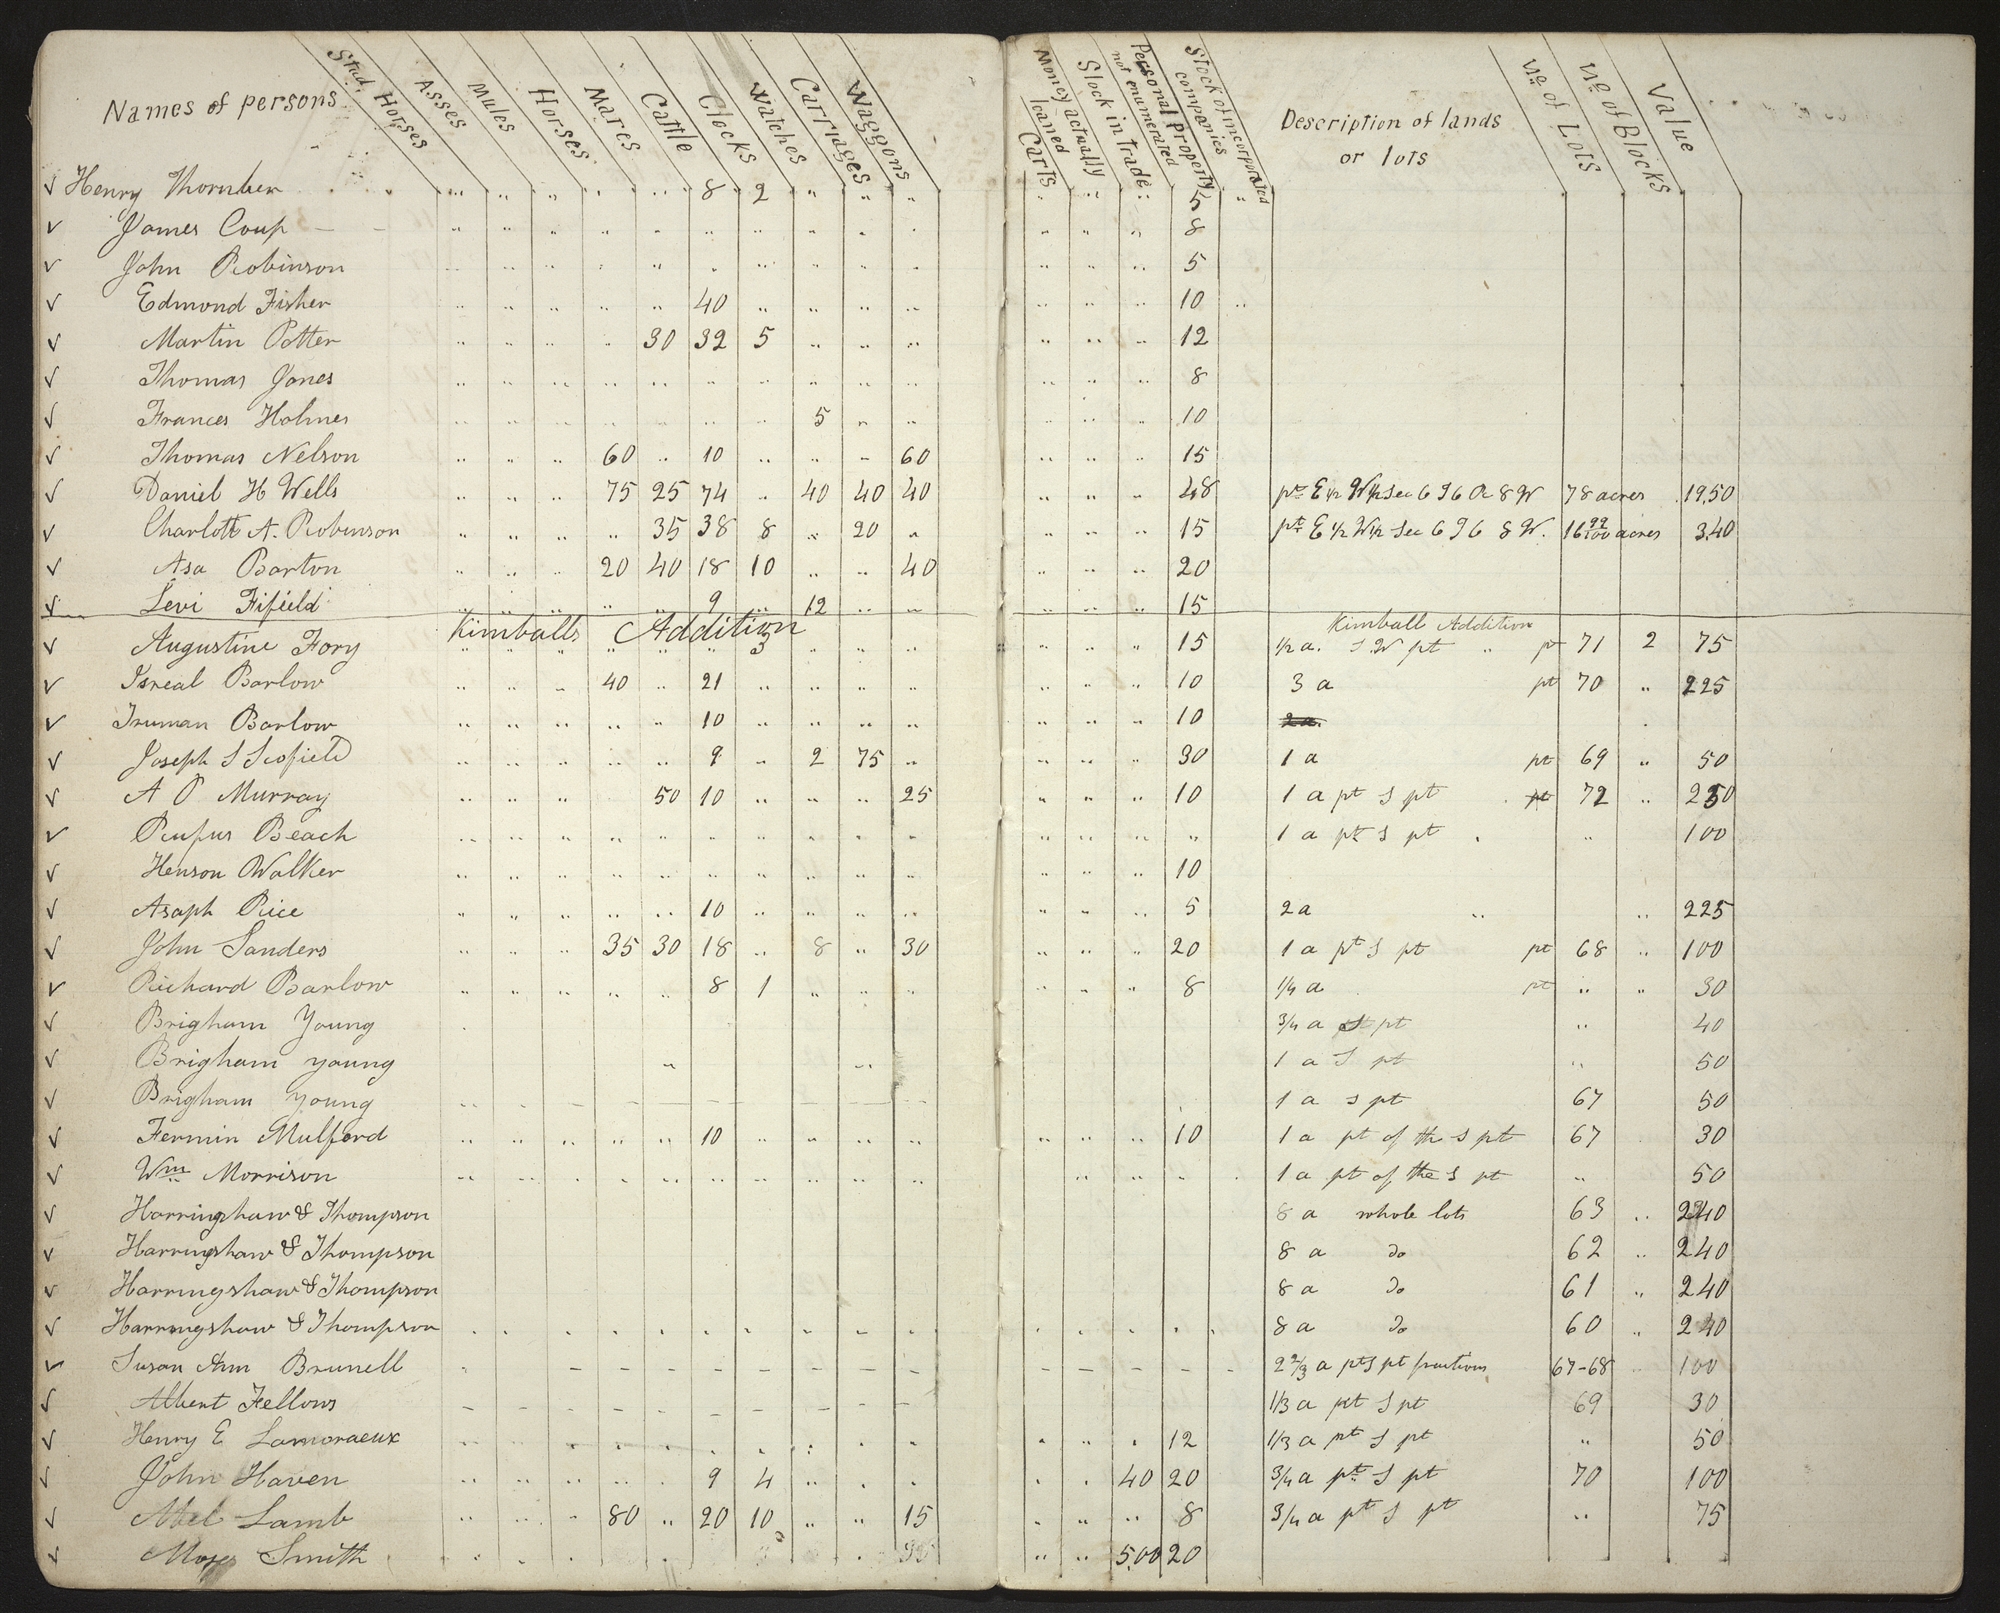 Names of persons Stud Horses Asses Mules Horses Mares Cattle Clocks Watches Carriages Waggons Carts Money actually loaned Stock in trade Personal property not enumerated Stock of incorporated companies Description of lands or lots No of Lots No of Blocks Value
✓ Henry Thornber 8 2 5
✓ James Coup 8
✓ John Robinson 5
✓ Edmond Fisher 40 10
✓ Martin Potter 30 32 5 12
✓ Thomas Jones 8
✓ Frances Holmes 5 10
✓ Thomas Nelson 60 10 60 15
✓ Daniel H Wells 75 25 74 40 40 40 48 pt E 1/2 W 1/2 Sec 6 T6 R 8 W 78 acres 1950
✓ Charlott A. Robinson 35 38 8 20 15 pt E 1/2 W 1/2 Sec 6 T6 8 W. 16 99/100 acres 340
✓ Asa Barton 20 40 18 10 40 20
✓ Levi Fifield 9 12 15
Kimballs Addition Kimball Addition
✓ Augustine Fory 3 15 1/2 a. S W pt " pt 71 2 75
✓ Isreal Barlow 40 21 10 3 a pt 70 " 225
✓ Truman Barlow 10 10 2a.
✓ Joseph S Scofield 9 2 75 30 1 a pt 69 " 50
✓ A P Murray 50 10 25 10 1 a pt S pt pt 72 " 250
✓ Rufus Beach 1 a pt S pt " 100
✓ Henson Walker 10
✓ Asaph Rice 10 5 2a " " 225
✓ John Sanders 35 30 18 8 30 20 1 a pt S pt pt 68 " 100
✓ Richard Barlow 8 1 8 1/4 a pt " " 30
✓ Brigham Young 3/4 a S pt " 40
✓ Brigham young 1 a S pt " 50
✓ Brigham young 1 a S pt 67 50
✓ Fermin Mulford 10 10 1 a pt of the S pt 67 30
✓ Wm Morrison 1 a pt of the S pt " 50
✓ Harringshaw & Thompson 8 a whole lots 63 " 240
✓ Harringshaw & Thompson 8 a do 62 " 240
✓ Harringshaw & Thompson 8 a do 61 " 240
✓ Harringshaw & Thompson 8 a do 60 " 240
✓ Susan Ann Brunell 2 2/3 a pt S pt fractions 67-68 100
✓ Albert Fellows 1/3 a pt S pt 69 30
✓ Henry E Lamoraeux 12 1/3 a pt S pt " 50
✓ John Haven 9 4 40 20 3/4 a pt S pt 70 100
✓ Abel Lamb 80 20 10 15 8 3/4 a pt S pt " 75
✓ Moses Smith 500 20